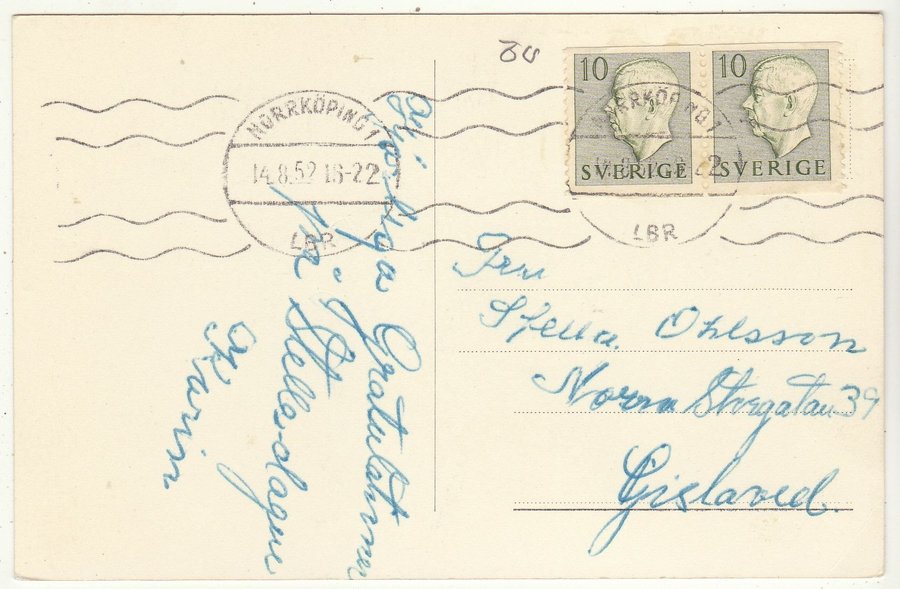 20
10
SVERIGE
10
SVERIGE
NORRKÖPING 1
14.8.52.18-22
LBR
NORRKÖPING 1
LBR
Hjärtliga Gratulationer
på St
Stella-dagen
Karin
Fru
Stella. Ohlsson
Norra Storgatan 39
Gislaved.